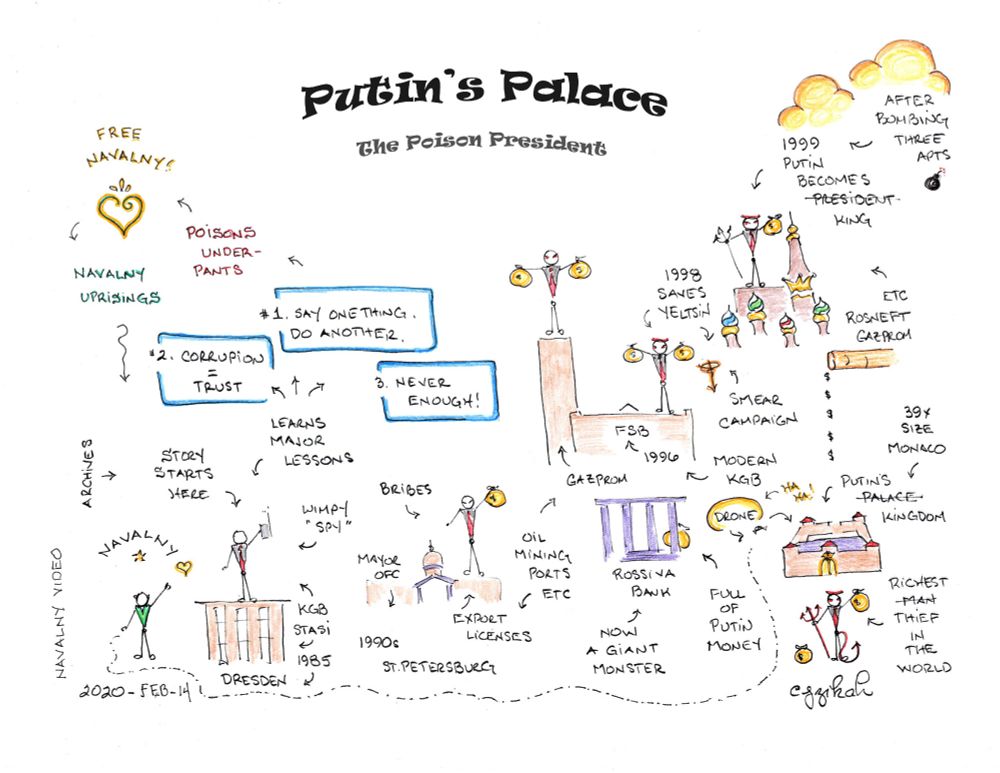 Putin's Palace
The Poison President
FREE
NAVALNY!
NAVALNY
UPRISINGS
POISONS
UNDER-
PANTS
#1. SAY ONE THING.
DO ANOTHER.
#2. CORRUPION
=
TRUST
3. NEVER
ENOUGH!
LEARNS
MAJOR
LESSONS
ARCHIVES
STORY
STARTS
HERE
NAVALNY VIDEO
NAVALNY
2020-FEB-14!
WIMPY
"SPY"
KGB
STASI
1985
DRESDEN
BRIBES
MAYOR
OFC
1990s
ST. PETERSBURG
EXPORT
LICENSES
OIL
MINING
PORTS
ETC
GAZPROM
FSB
1996
MODERN
KGB
ROSSIYA
BANK
NOW
A GIANT
MONSTER
FULL
OF
PUTIN
MONEY
1998
SAVES
YELTSIN
SMEAR
CAMPAIGN
AFTER
BOMBING
THREE
APTS
1999
PUTIN
BECOMES
PRESIDENT
KING
$
$
$
$
$
$
$
ETC
ROSNEFT
GAZPROM
$
$
$
$
$
39X
SIZE
MONACO
PUTIN'S
PALACE
KINGDOM
HA
HA!
DRONE
$
$
RICHEST
MAN
THIEF
IN
THE
WORLD
cyzikah